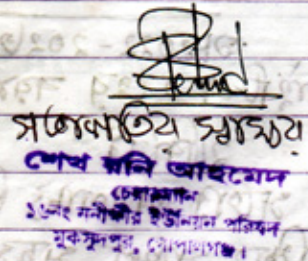 সভাপতির স্বাক্ষর
শেখ রনি আহমেদ
চেয়ারম্যান
১৬নং ননীক্ষীর ইউনিয়ন পরিষদ
মুকসুদপুর, গোপালগঞ্জ।